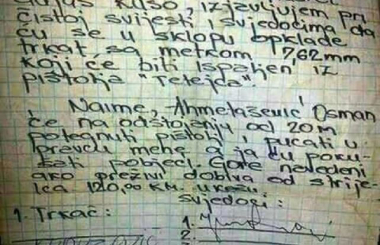 KUSO, izjavljujem pri
čistoj svijesti i svjedocima da
ću se u sklopu opklade
trkat, sa metkom 7,62mm
koji će biti ispaljen iz
pištolja "Tetejca".
Naime, Ahmetašević Osman
će na odstojanju od 20m
potegnuti pištolj i pucati u
pravcu mene a ja ću poku-
šati pobjeći. Gore navedeni
ako preživi dobiva od strije-
lca 120,00 KM. u kešu.
svjedoci:
1. Trkač:
1.
2.